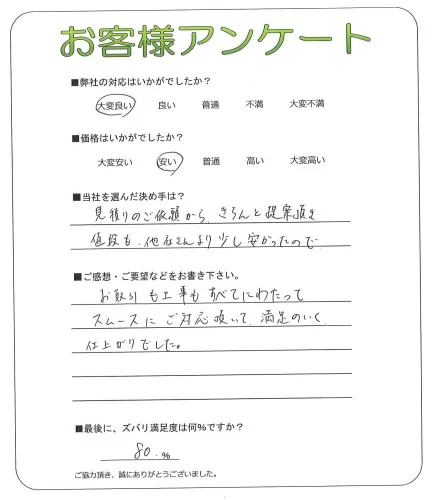 お客様アンケート
■弊社の対応はいかがでしたか?
大変良い 良い 普通 不満 大変不満
■価格はいかがでしたか?
大変安い 安い 普通 高い 大変高い
■当社を選んだ決め手は?
見積りのご依頼から、きちんと提案頂き
値段も、他社さんより少し安かったので
■ご感想・ご要望などをお書き下さい。
お取引も工事もすべてにわたって
スムースにご対応頂いて、満足のいく
仕上がりでした。
■最後に、ズバリ満足度は何%ですか?
80.%
ご協力頂き、誠にありがとうございました。